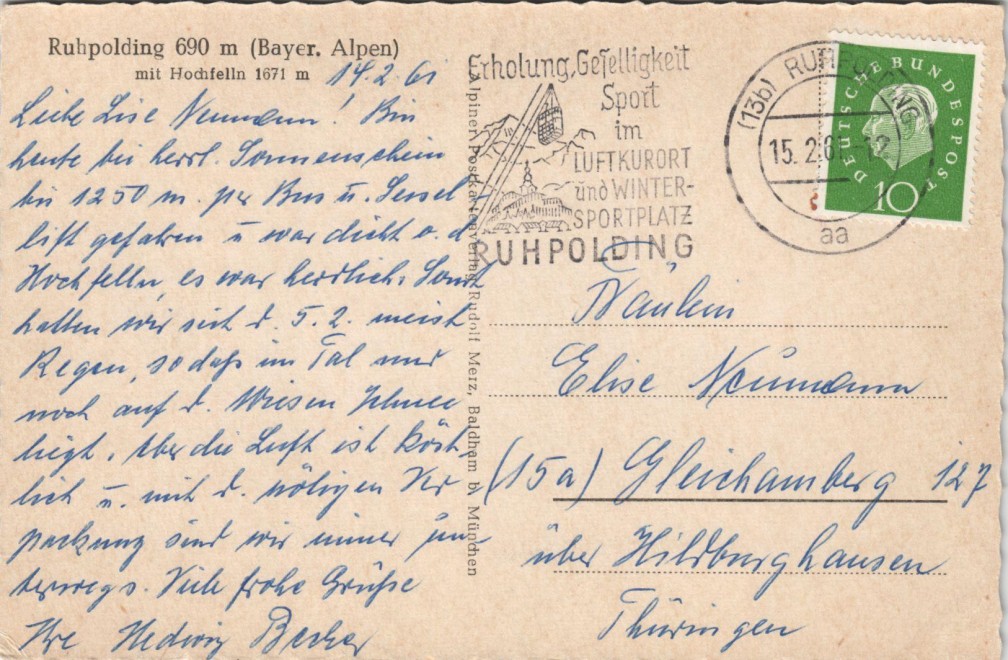 Ruhpolding 690 m (Bayer. Alpen)
mit Hochfelln 1671 m
14.2.61
Liebe Lise Neumann! Bin
heute bei herrl. Sonnenschein
bis 1250 m. per Bus u. Sessel
lift gefahren u war dicht a. d.
Hochfelln, es war herrlich. Sonst
hatten wir seit d. 5.2. meist
Regen, sodaß im Tal nur
noch auf d. Wiesen Schnee
liegt. Aber die Luft ist köst
lich u. mit d. nötigen Ver
packung sind wir immer un-
terwegs. Viele frohe Grüße
Ihre Hedwig Becker
Alpiner Postkartenverlag Rudolf Merz, Baldham b. München
Erholung, Geselligkeit
Sport
im
LUFTKURORT
und WINTER-
SPORTPLATZ
RUHPOLDING
(13b) RUHPOLDING
15. 2. 61 - 12
aa
DEUTSCHE BUNDESPOST
10
Fräulein
Elise Neumann
(15a) Gleichamberg 127
über Hildburghausen
Thüringen